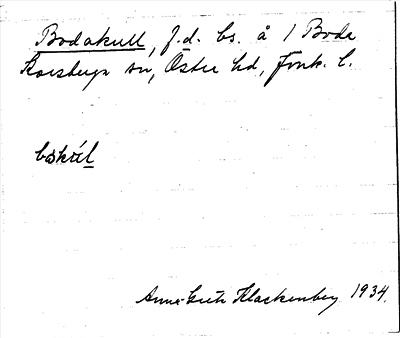 Bodakull, f.d. bs. å 1 Boda
Korsberga sn, Östra hd, Jönk. l.
Anna-Greta Klackenberg 1934.